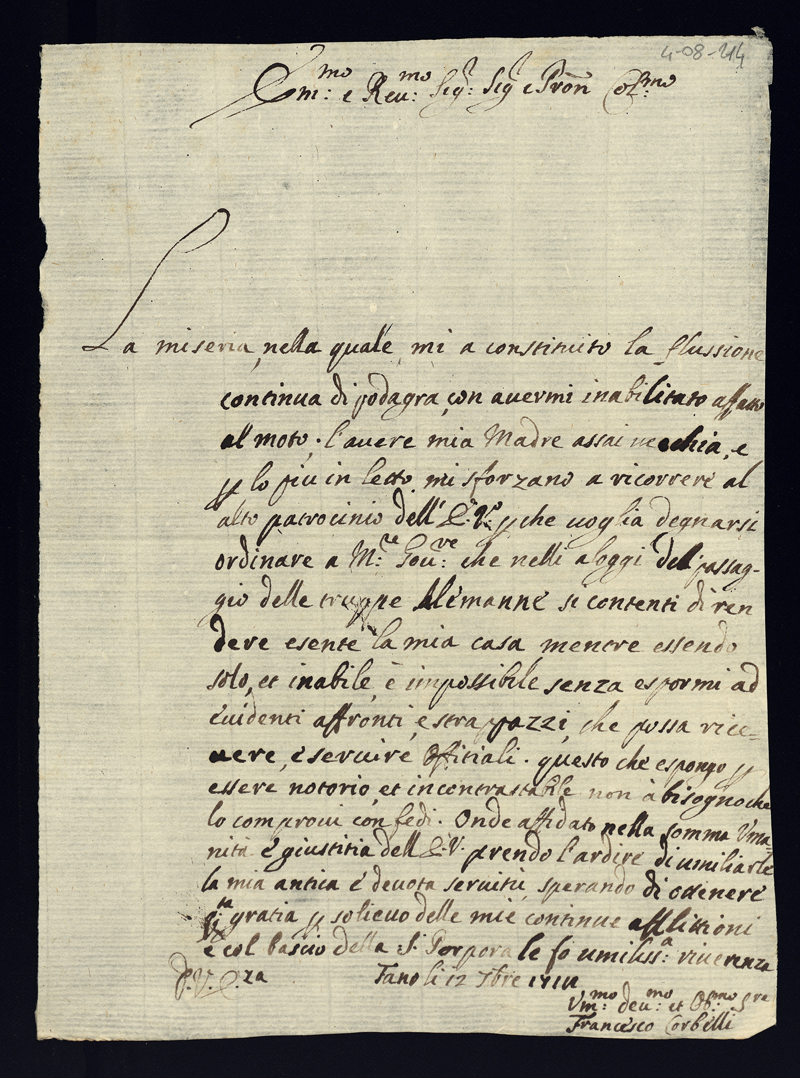 4-08-214
Em:mo e Reu:mo Sig:r Sig:r e Pron Col:mo
La miseria, nella quale mi a constituito la flussione
continua di podagra, con avermi inabilitato affatto
al moto, l'avere mia Madre assai vecchia, e
p lo piu in letto mi sforzano a ricorrere al
alto patrocinio dell' E.V. p che voglia degnarsi
ordinare a M:re Gou:re che nelli aloggi del passag-
gio delle truppe Alemanne si contenti di ren
dere esente la mia casa mentre essendo
solo, et inabile, è impossibile senza espormi ad
evidenti affronti, e strapazzi, che possa rice-
uere, e seruire Officiali. questo che espongo p
essere notorio, et incontrastabile non à bisogno che
lo comprovi con fedi. Onde affidato nella somma Uma-
nità e giustitia dell' E.V. prendo l'ardire di umiliarle
la mia antica e devota servitù, sperando di ottenere
gratia p solievo delle mie continue afflittioni
e col bascio della S: Porpora le fo umiliss:a riverenza
D.V.E.za Fano li 12 7bre
Um:mo deu:mo et Ob:mo S:re
Francesco Corbelli